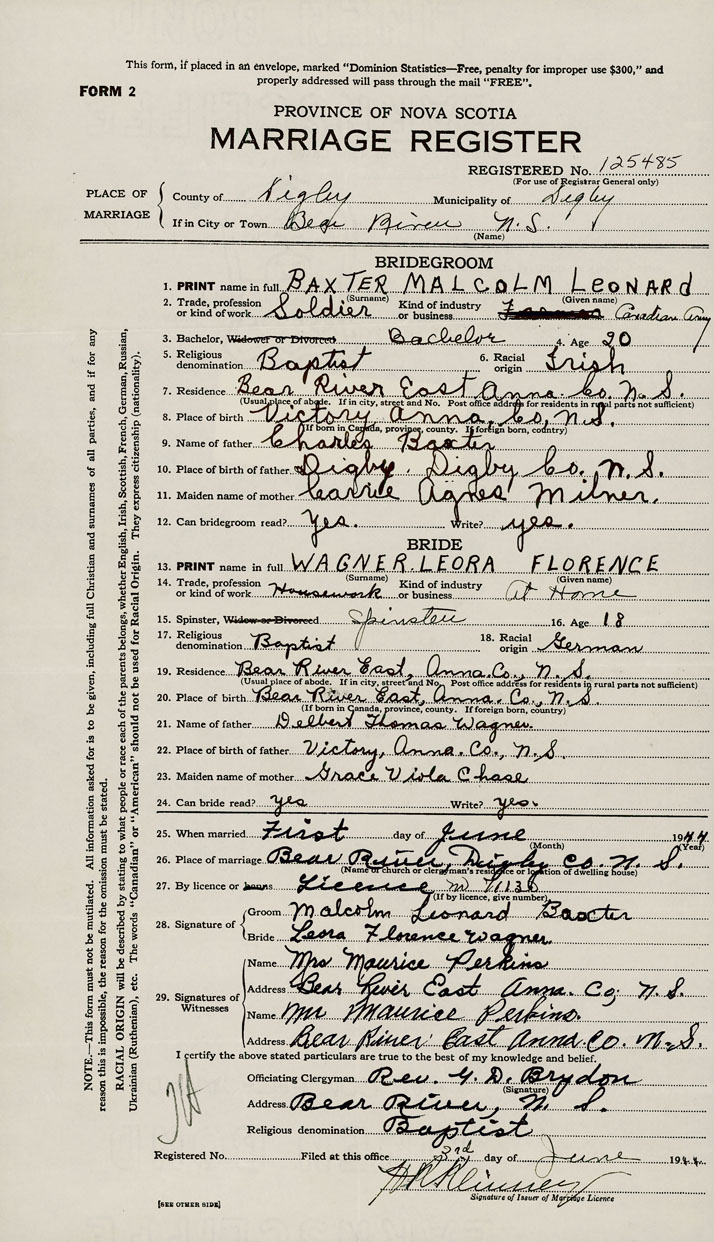 This form, if placed in an envelope, marked "Dominion Statistics—Free, penalty for improper use $300," and
properly addressed will pass through the mail "FREE".
FORM 2
PROVINCE OF NOVA SCOTIA
MARRIAGE REGISTER
REGISTERED No. 125485
(For use of Registrar General only)
PLACE OF MARRIAGE
County of Digby Municipality of Digby
If in City or Town Bear River N.S.
(Name)
BRIDEGROOM
1. PRINT name in full BAXTER MALCOLM LEONARD
(Surname) (Given name)
2. Trade, profession or kind of work Soldier Kind of industry or business Canadian Army
3. Bachelor, Widower or Divorced Bachelor 4. Age 20
5. Religious denomination Baptist 6. Racial origin Irish
7. Residence Bear River East Anna. Co. N. S.
(Usual place of abode. If in city, street and No. Post office address for residents in rural parts not sufficient)
8. Place of birth Victory Anna. Co, N.S.
(If born in Canada, province, county. If foreign born, country)
9. Name of father Charles Baxter
10. Place of birth of father Digby. Digby Co. N. S.
11. Maiden name of mother Carrie Agnes Milner.
12. Can bridegroom read? Yes. Write? yes.
BRIDE
13. PRINT name in full WAGNER. LEORA FLORENCE
(Surname) (Given name)
14. Trade, profession or kind of work Housework Kind of industry or business At Home
15. Spinster, Widow or Divorced Spinster 16. Age 18
17. Religious denomination Baptist 18. Racial origin German
19. Residence Bear River East, Anna. Co., N. S.
(Usual place of abode. If in city, street and No. Post office address for residents in rural parts not sufficient)
20. Place of birth Bear River East, Anna. Co., N. S.
(If born in Canada, province, county. If foreign born, country)
21. Name of father Delbert Thomas Wagner.
22. Place of birth of father Victory, Anna. Co., N. S.
23. Maiden name of mother Grace Viola Chase
24. Can bride read? yes Write? yes.
25. When married First day of June 1944
(Month) (Year)
26. Place of marriage Bear River, Digby Co. N. S.
(Name of church or clergyman's residence or location of dwelling house)
27. By licence or banns Licence
(If by licence, give number)
28. Signature of
Groom Malcolm Leonard Baxter
Bride Leora Florence Wagner.
29. Signatures of Witnesses
Name Mrs Maurice Perkins
Address Bear River East Anna. Co. N. S.
Name Mr Maurice Perkins.
Address Bear River East Anna. Co. N. S.
I certify the above stated particulars are true to the best of my knowledge and belief.
Officiating Clergyman Rev. G. D. Brydon
(Signature)
Address Bear River, N. S.
Religious denomination Baptist
Registered No. Filed at this office 3rd day of June 1944
Signature of Issuer of Marriage Licence
[SEE OTHER SIDE]
NOTE.—This form must not be mutilated. All information asked for is to be given, including full Christian and surnames of all parties, and if for any
reason this is impossible, the reason for the omission must be stated.
RACIAL ORIGIN will be described by stating to what people or race each of the parents belongs, whether English, Irish, Scottish, French, German, Russian,
Ukrainian (Ruthenian), etc. The words "Canadian" or "American" should not be used for Racial Origin. They express citizenship (nationality).